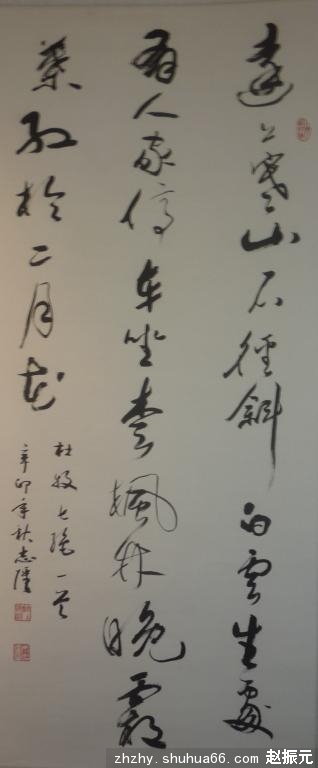 遠上寒山石徑斜白雲生處
有人家停車坐愛楓林晚霜
葉紅於二月花
杜牧七絕一首
辛卯年秋志
zhzhy.shuhua66.com 赵振元